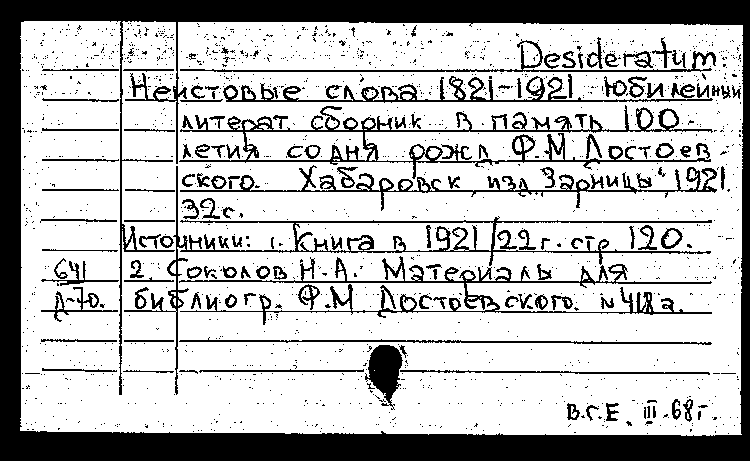 Desideratum.
Неистовые слова 1821-1921. Юбилейный
литерат. сборник в память 100-
летия со дня рожд. Ф.М. Достоев-
ского. Хабаровск, изд. "Зарницы", 1921.
32с.
Источники: 1. Книга в 1921/22г. стр. 120.
641 2. Соколов Н.А. Материалы для
Д-70. библиогр. Ф.М. Достоевского. N 418а.
В.Г.Е. III.68г.